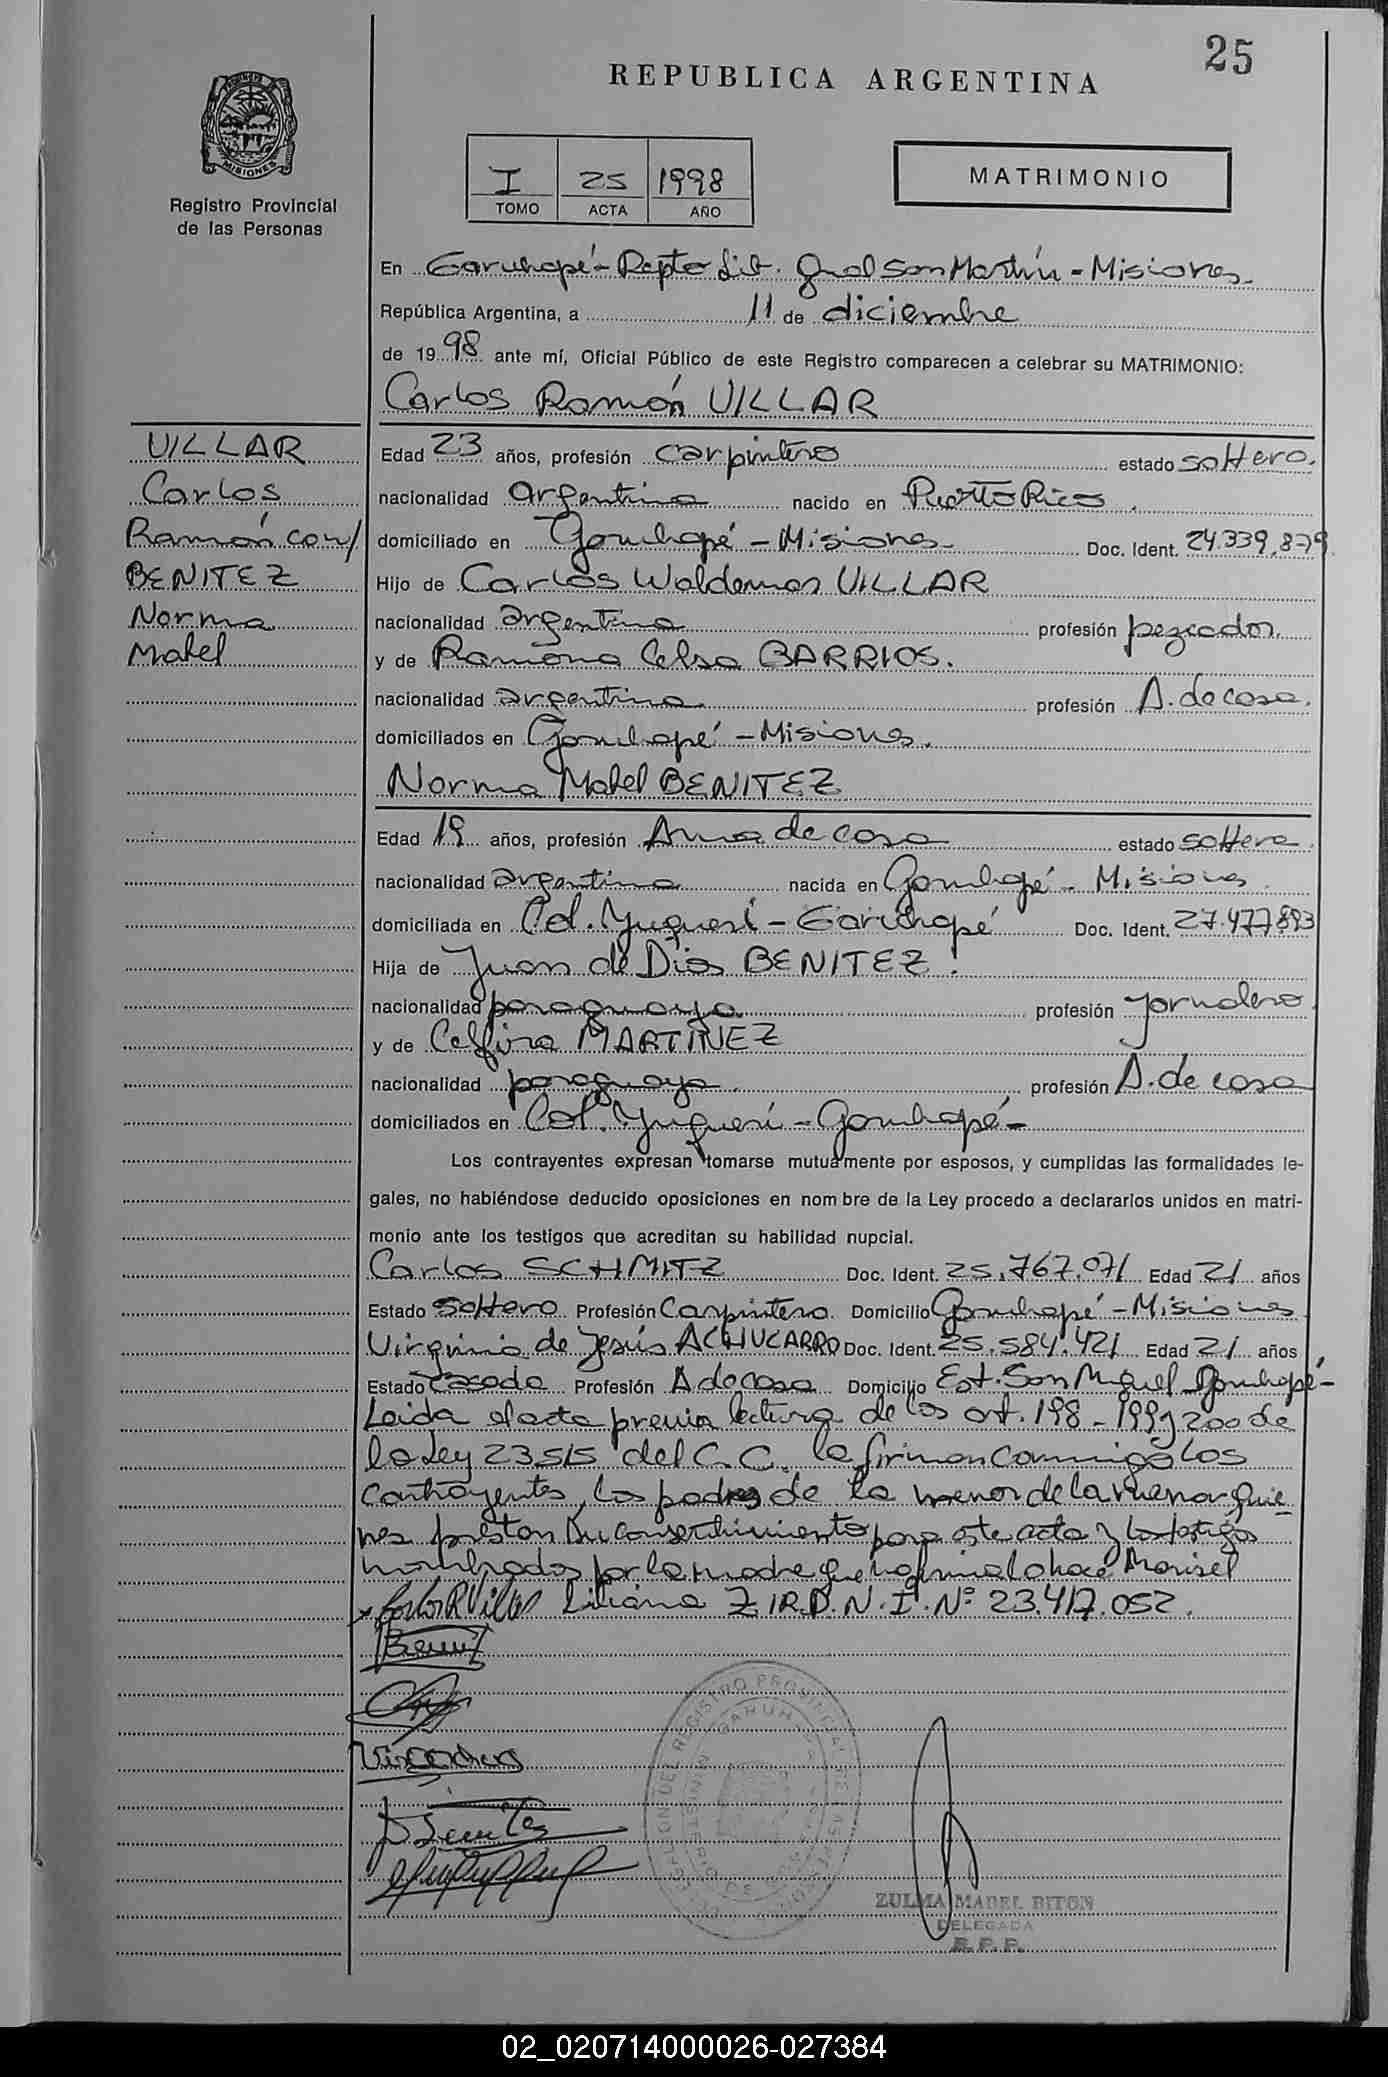 25
REPUBLICA ARGENTINA
PROVINCIA DE
MISIONES
Registro Provincial
de las Personas
I 25 1998
TOMO ACTA AÑO
MATRIMONIO
En Garuhapé - Depto Lib. Gral San Martín - Misiones.
República Argentina, a 11 de diciembre
de 1998 ante mí, Oficial Público de este Registro comparecen a celebrar su MATRIMONIO:
Carlos Ramón VILLAR
VILLAR
Carlos
Ramón con/
BENITEZ
Norma
Mabel
Edad 23 años, profesión carpintero estado soltero.
nacionalidad argentina nacido en Puerto Rico
domiciliado en Garuhapé - Misiones - Doc. Ident. 24.339.879
Hijo de Carlos Waldemar VILLAR
nacionalidad argentina profesión pezcador.
y de Ramona Celsa BARRIOS.
nacionalidad argentina profesión A. de casa.
domiciliados en Garuhapé - Misiones.
Norma Mabel BENITEZ
Edad 19 años, profesión Ama de casa estado soltera
nacionalidad argentina nacida en Garuhapé - Misiones
domiciliada en Col. Yuquerí - Garuhapé Doc. Ident. 27.477.893
Hija de Juan de Dios BENITEZ
nacionalidad paraguaya profesión jornalero
y de MARTINEZ
nacionalidad paraguaya profesión A. de casa
domiciliados en Col. Yuquerí - Garuhapé -
Los contrayentes expresan tomarse mutuamente por esposos, y cumplidas las formalidades le-
gales, no habiéndose deducido oposiciones en nom bre de la Ley procedo a declararlos unidos en matri-
monio ante los testigos que acreditan su habilidad nupcial.
Carlos SCHMITZ Doc. Ident. 25.767.071 Edad 21 años
Estado soltero Profesión Carpintero Domicilio Garuhapé - Misiones
Virginia de Jesús ACHUCARRO Doc. Ident. 25.584.421 Edad 21 años
Estado casada Profesión A de casa Domicilio Est. San Miguel Garuhapé -
Leida el acta previa lectura de los art. 198 - 199 y 200 de
la Ley 23515 del C.C. la firman conmigo los
contrayentes, los padres de la menor de la menor quie-
nes prestan su consentimiento para este acta y los testigos
nombrados por la madre que no firma lo hace Marisel
Carlos R Villar Liliana Z IR.D.N.I. Nº 23.417.052.
ZULMA MABEL BITON
DELEGADA
R.P.P.
02_020714000026-027384